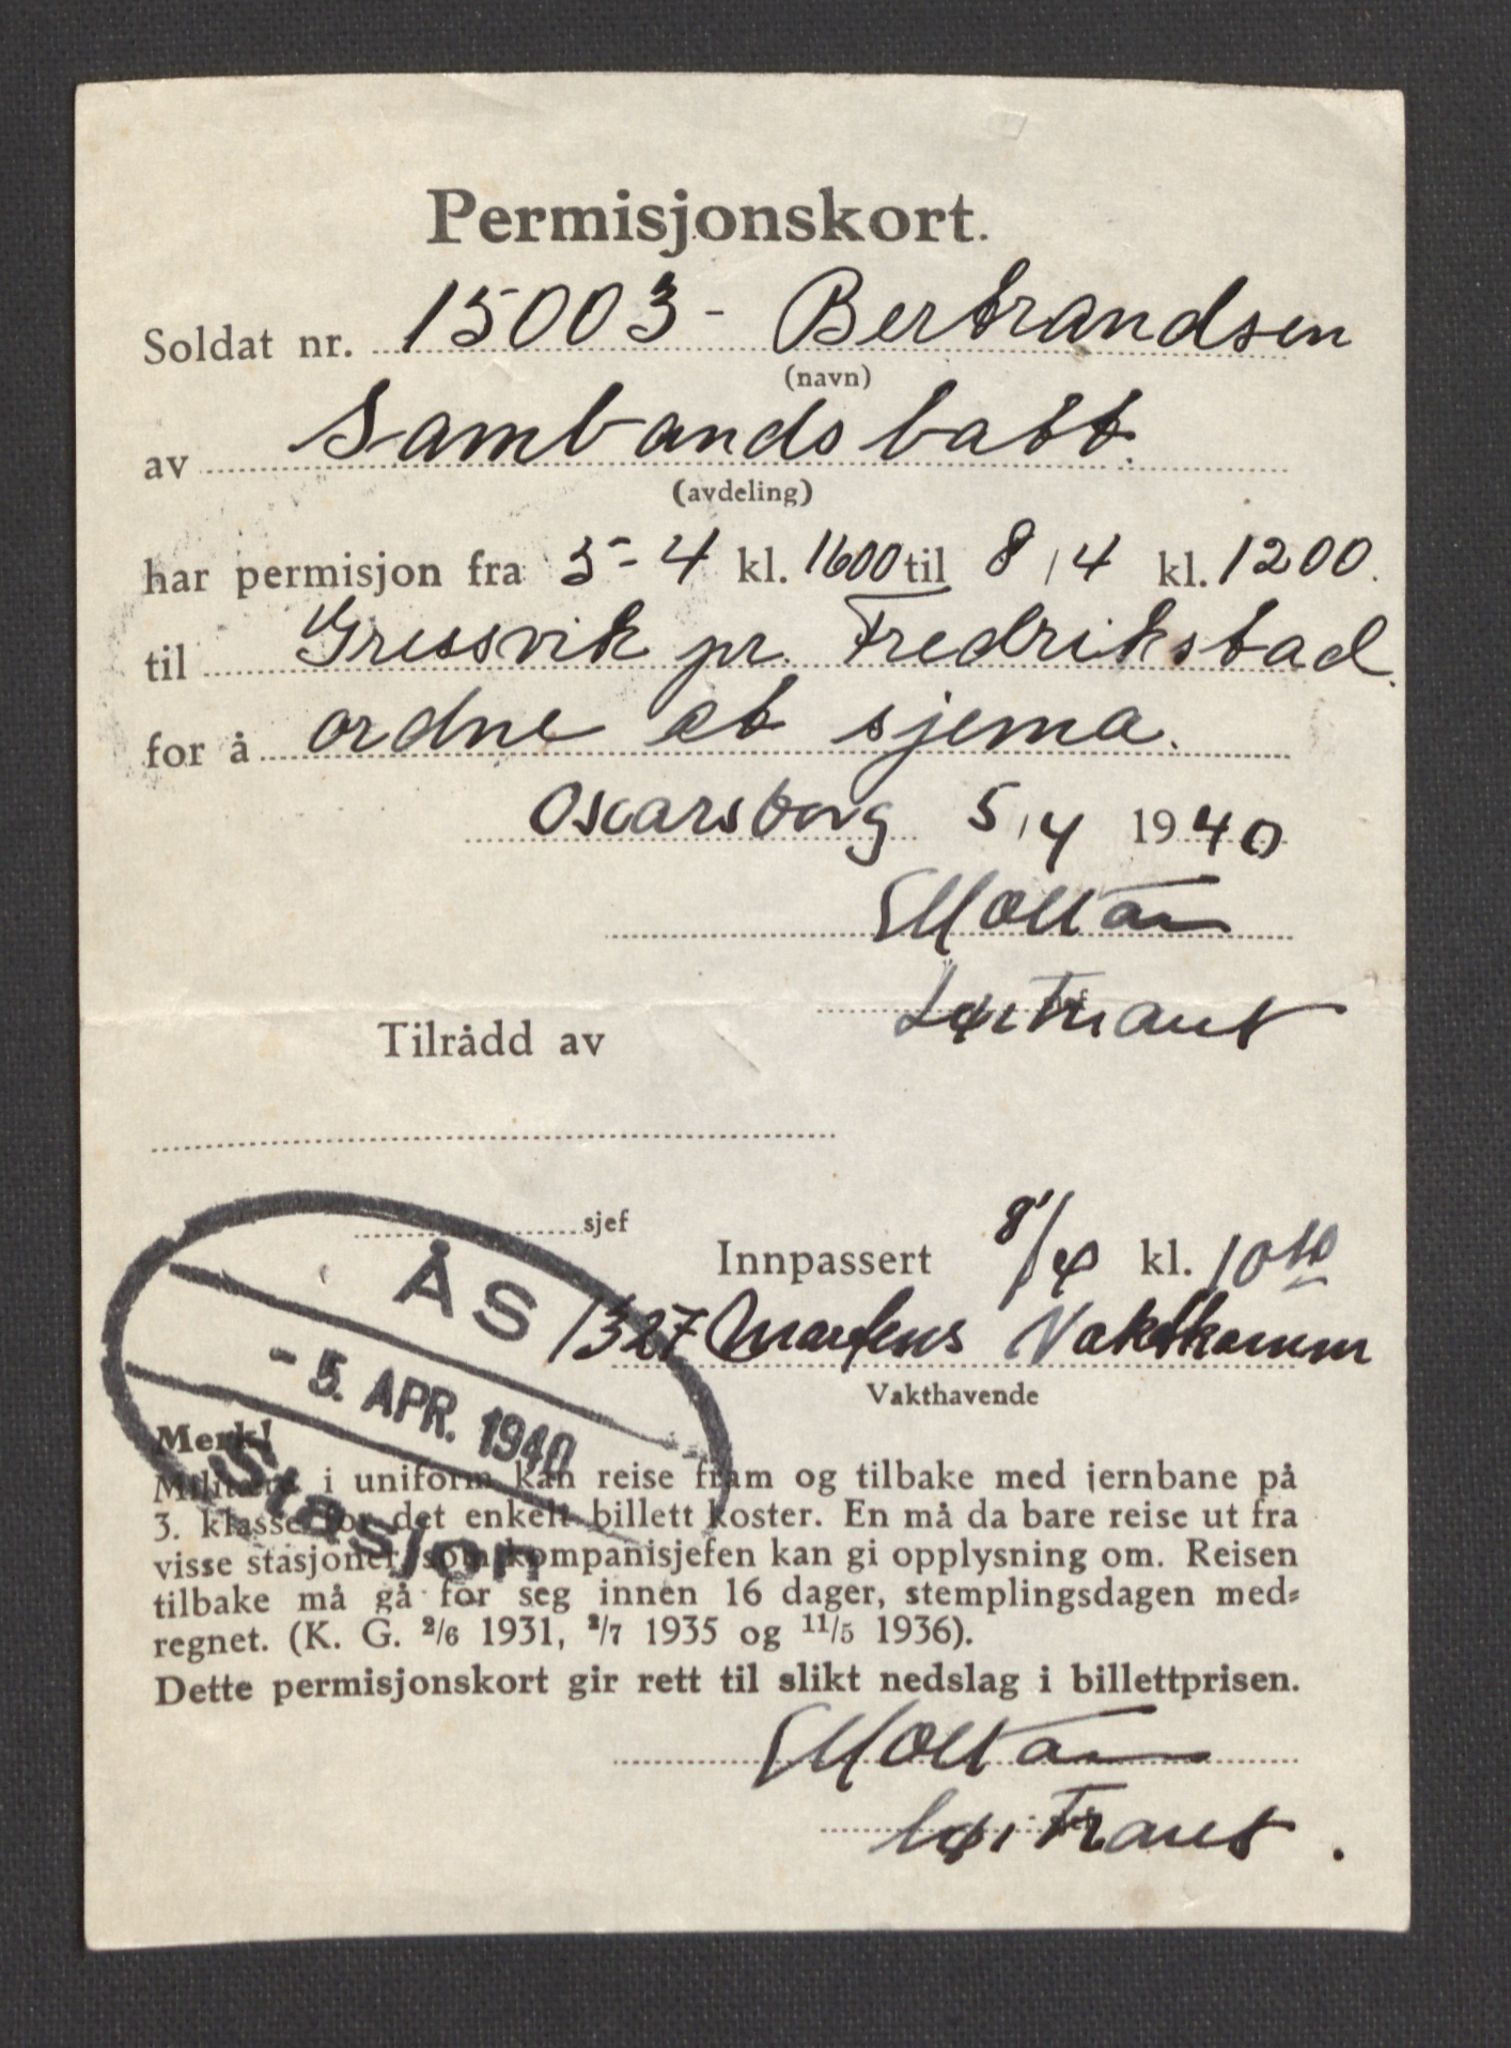 Permisjonskort.
Soldat nr. 15003 - Bertrandsen
(navn)
av Sambandsbatt.
(avdeling)
har permisjon fra 5-4 kl. 1600 til 8/4 kl. 1200.
til Gressvik pr. Fredrikstad.
for å ordne et sjema.
Oscarsborg 5/4 1940
Løitnant
Tilrådd av
sjef
Innpassert 8/4 kl. 10 10
1327 Martens Vaktkomm
Vakthavende
ÅS
- 5. APR. 1940
Stasjon
Merk!
Militære i uniform kan reise fram og tilbake med jernbane på
3. klasse for det enkelt billett koster. En må da bare reise ut fra
visse stasjoner, som kompanisjefen kan gi opplysning om. Reisen
tilbake må gå for seg innen 16 dager, stemplingsdagen med-
regnet. (K. G. 2/6 1931, 2/7 1935 og 11/5 1936).
Dette permisjonskort gir rett til slikt nedslag i billettprisen.
Løitnant.